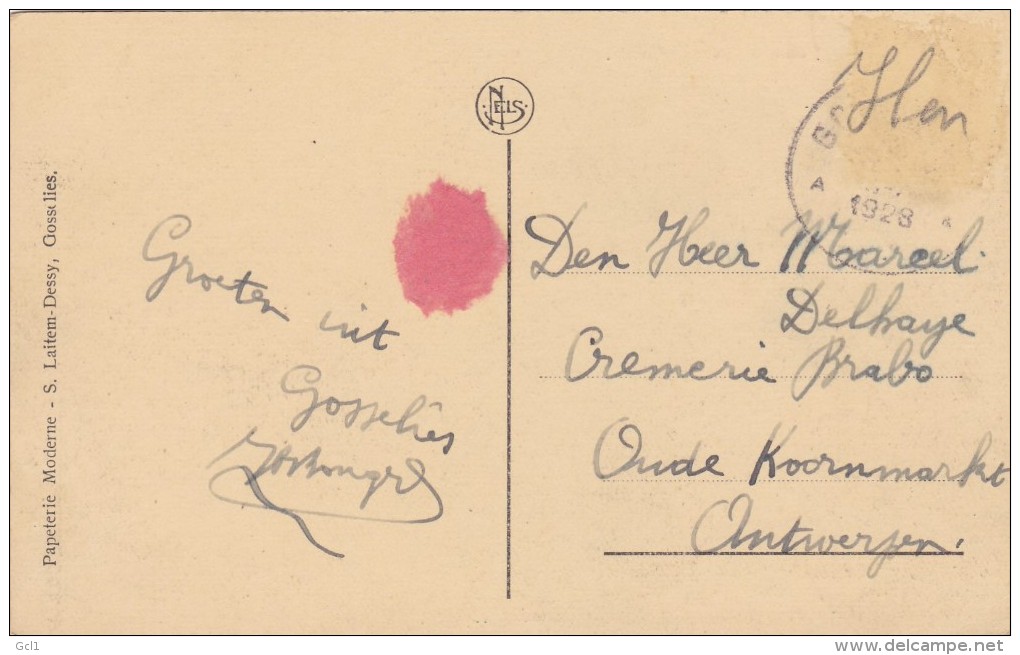 NELS
Hen
1928
A
Papeterie Moderne - S. Laitem-Dessy, Gosselies.
Groeten uit
Gosselies
Den Heer Marcel
Delhaye
Cremerie Brabo
Oude Koornmarkt
Antwerpen.
Gcl1
www.delcampe.net